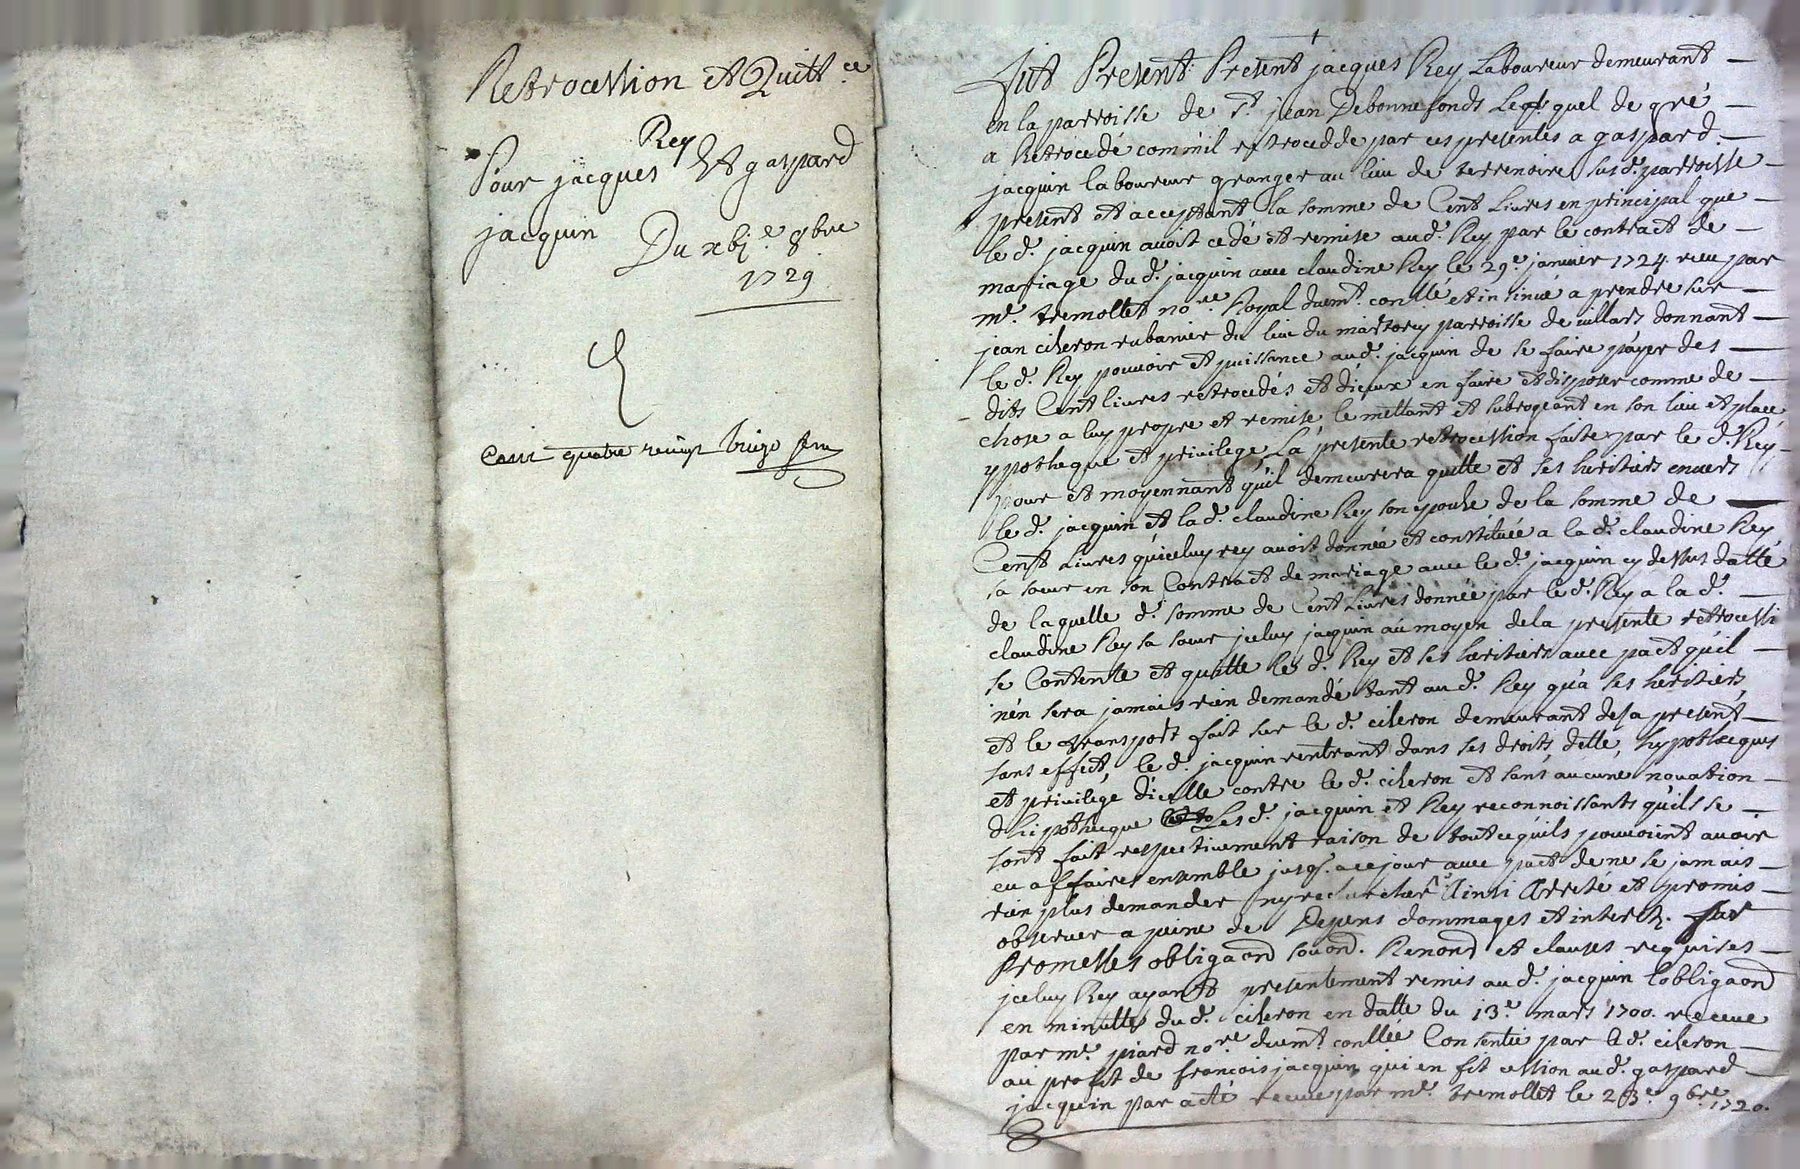 Retrocession et Quitt.ce
Pour jacques Rey Et gaspard
jacquin
Du xbj.e 8bre
1729
quatre
fut Present Present jacques Rey Laboureur demeurant
en la parroisse de St. jean Debonnefonds Leq. quel de gré
a Retrocedé comm'il retrocedde par ces presentes a gaspard
jacquin laboureur granger au lieu de terrenoire susd. parroisse
present et acceptant la somme de Cent Livres en principal que
le d. jacquin avoit cedé et remise aud. Rey par le contract de
mariage du d. jacquin avec claudine Rey le 29.e janvier 1724. receu par
me. tremollet no.re Royal duemt. conllé et insinué a prendre sur
jean cileron rubanier du lieu du martorey parroisse de villars donnant
le d. Rey pouvoir et puissance aud. jacquin de se faire payer des
dits Cent livres retrocedés et d'iceux en faire et disposer comme de
chose a luy propre et remise le mettant et subrogeant en son lieu et place
ypotheque et privilege La presente retrocession faite par le d. Rey
pour et moyennant qu'il demeurera quitte et ses heritiers envers
le d. jacquin et lad. claudine Rey son epouse de la somme de
Cent Livres qu'iceluy rey avoit donnée et constituée a la d. claudine Rey
sa soeur en son Contract de mariage avec le d. jacquin cy dessus datté
de laquelle d. somme de Cent Livres donnée par le d. Rey a la d.
claudine Rey sa soeur jceluy jacquin au moyen dela presente retrocessi
se Contente et quitte le d. Rey et ses heritiers avec pact qu'il
n'en sera jamais rien demandé tant au d. Rey qu'a ses heritiers
et le transport fait sur le d. cileron demeurant desa present
sans effect, le d. jacquin rentrant dans ses droits dette, hypotheques
et privilege d'icelle contre le d. cileron et sans aucune novation
dhipotheque Les d. jacquin et Rey reconnoissants qu'ils se
sont fait respectivement raison de tout ce qu'ils pouvoient avoir
eu affaires ensemble jusq. a ce jour avec pact de ne se jamais
rien plus demander ny rechercher Ainsi Arreté et promis
observer a peine de Depens dommages et interetz. par
Promesses obligaond soûond. Renond et clauses requises
jceluy Rey ayant presentement remis au d. jacquin l'obligaond
en minutte du d. cileron en datte du 13.e mars 1700. receue
par me. piard no.re duemt. conllée Consentie par le d. cileron
au profit de francois jacquin qui en fit cession au d. gaspard
jacquin par acte receu par me. tremollet le 23.e 9bre 1720.